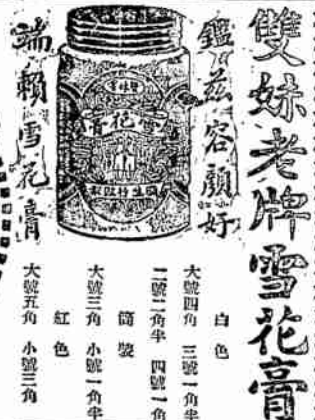 雙妹老牌雪花膏
鑑茲容顏好
端賴雪花膏
雙妹
膏花雪
白色
大號四角 三號一角半
二號二角半 四號一角
筒裝
大號三角 小號一角半
紅色
大號五角 小號三角